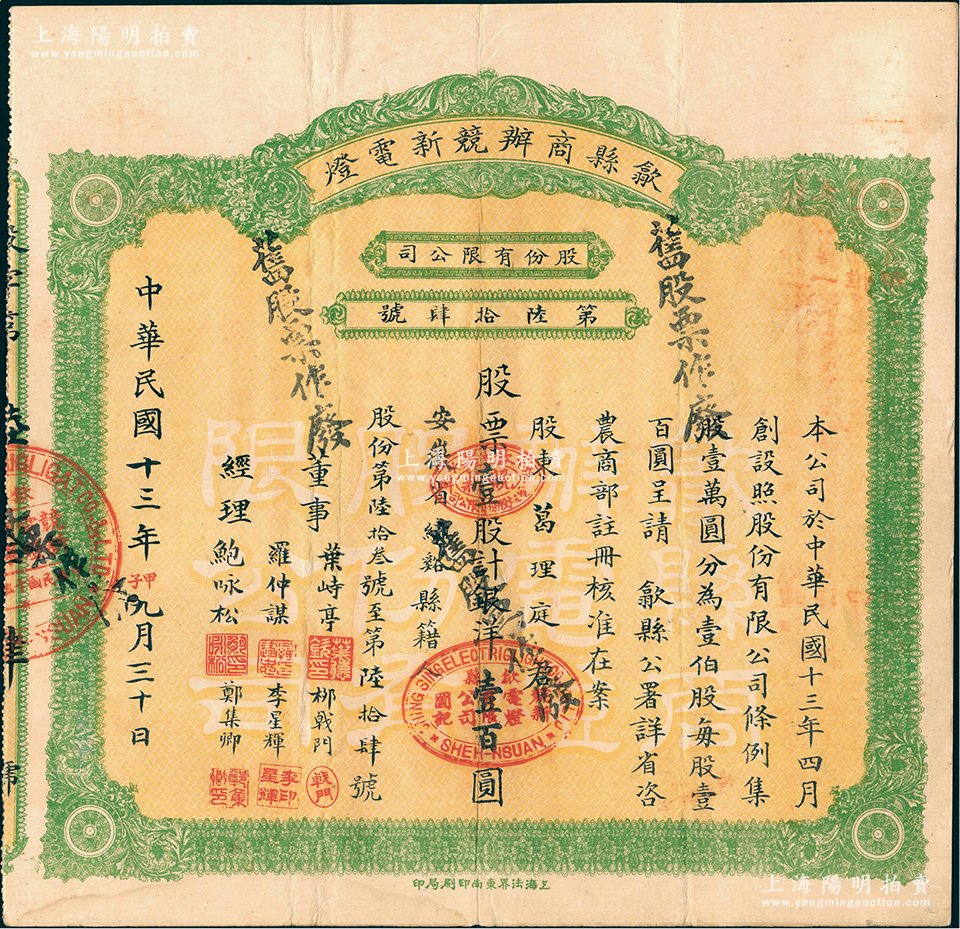 上海陽明拍賣
www.yangmingauction.com
歙縣商辦競新電燈
股份有限公司
第陸拾肆號
本公司於中華民國十三年四月
創設照股份有限公司條例集
股壹萬圓分為壹伯股每股壹
百圓呈請 歙縣公署詳省咨
農商部註冊核准在案
股東葛理庭
股票壹股計銀洋壹百圓
安徽省績谿縣籍
股份第陸拾叁號至第陸拾肆號
董事 葉峙亭 柳戰門
羅仲謀 李星輝
經理 鮑咏松 鄭集卿
中華民國十三年甲子九月三十日
舊股票作廢
舊股票作廢
SHING SING ELECTRIC LIGHT
SHEH-NSUAN
李印星輝
戰門
上海陽明拍賣
www.yangmingauction.com
上海法界東南印刷局印
上海陽明拍賣
www.yangmingauction.com